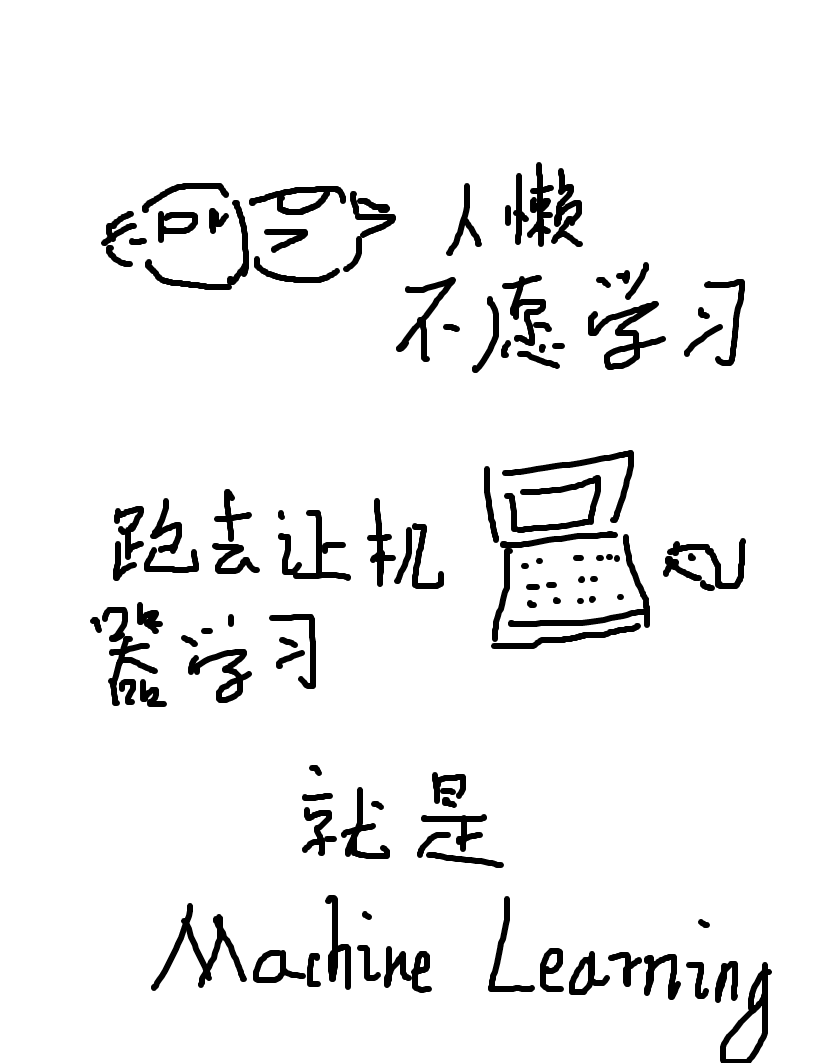 人懒
不愿学习
跑去让机
器学习
就是
Machine Learning